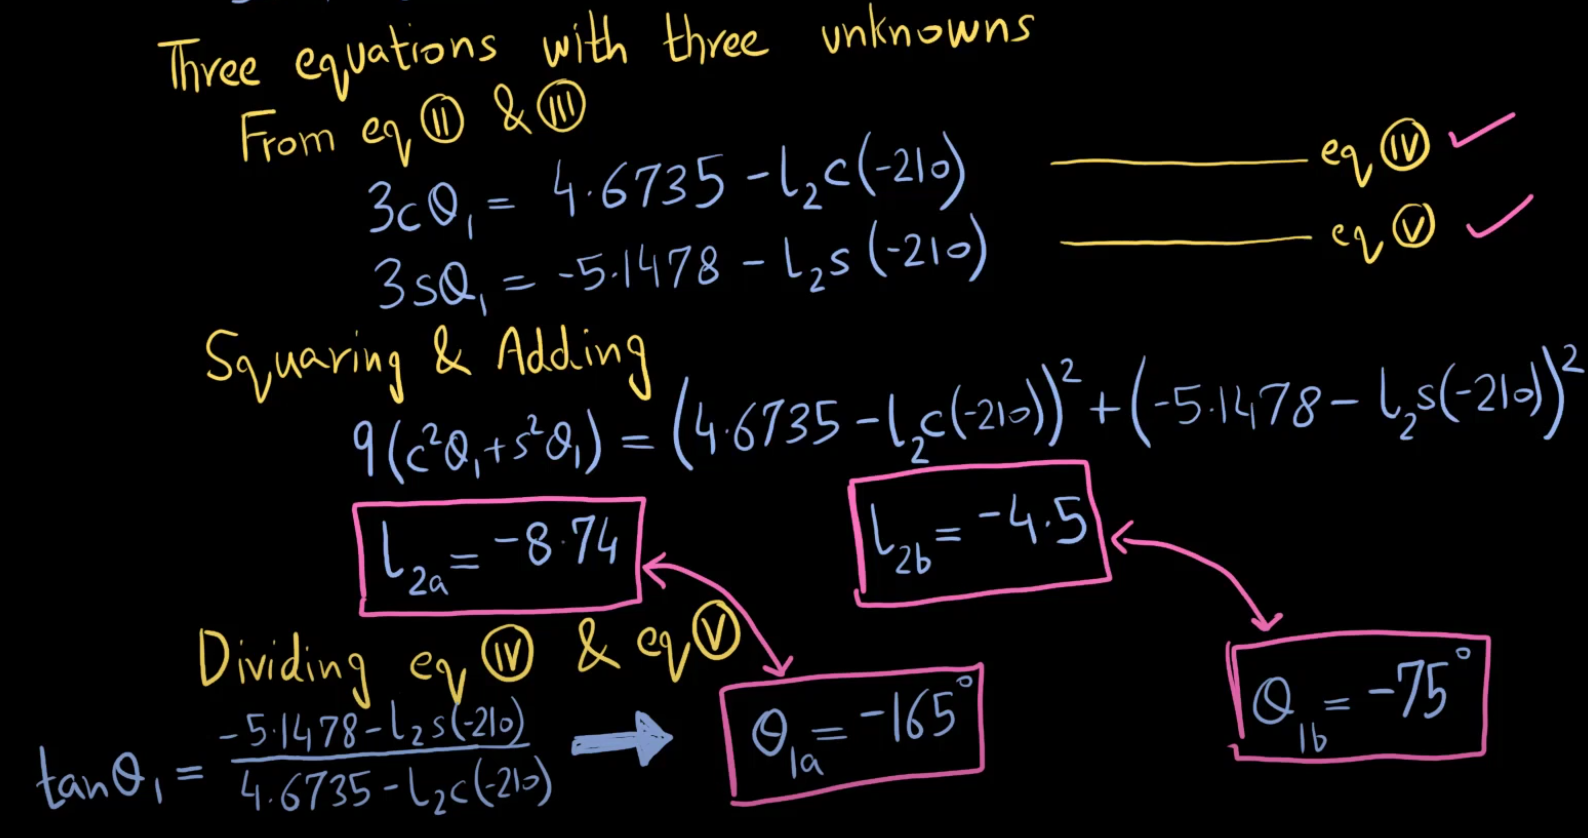 Three equations with three unknowns
From eq Ⅱ & Ⅲ
3cθ₁ = 4.6735 - l₂c(-210) eq Ⅳ
3sθ₁ = -5.1478 - l₂s(-210) eq Ⅴ
Squaring & Adding
9(c²θ₁+s²θ₁) = (4.6735 - l₂c(-210))² + (-5.1478 - l₂s(-210))²
l₂a = -8.74
l₂b = -4.5
Dividing eq Ⅳ & eq Ⅴ
tanθ₁ = (-5.1478 - l₂s(-210)) / (4.6735 - l₂c(-210))
θ₁a = -165°
θ₁b = -75°